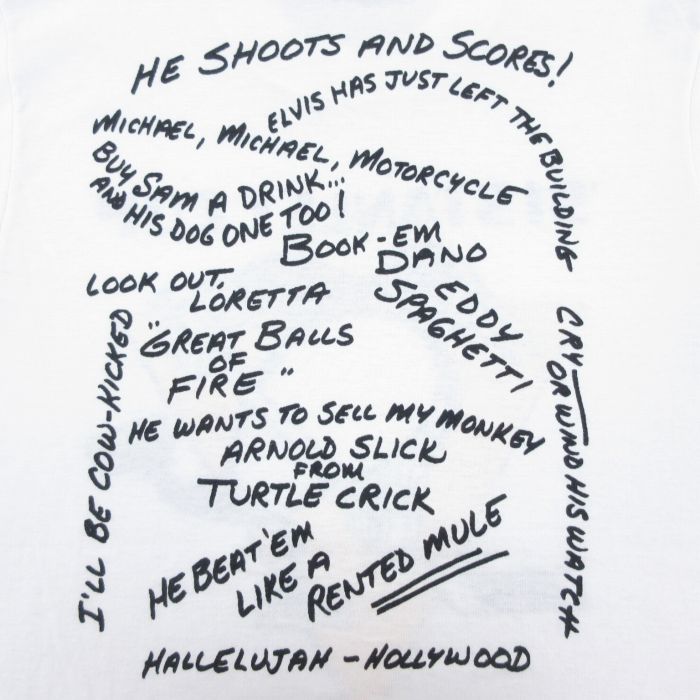 HE SHOOTS AND SCORES!
ELVIS HAS JUST LEFT THE BUILDING
MICHAEL, MICHAEL, MOTORCYCLE
BUY SAM A DRINK...
AND HIS DOG ONE TOO!
BOOK-EM
DANO
LOOK OUT,
LORETTA
EDDY
SPAGHETTI
"GREAT BALLS
OF
FIRE"
I'LL BE COW-KICKED
CRY
OR WIND HIS WATCH
HE WANTS TO SELL MY MONKEY
ARNOLD SLICK
FROM
TURTLE CRICK
HE BEAT 'EM
LIKE A
RENTED MULE
HALLELUJAH - HOLLYWOOD